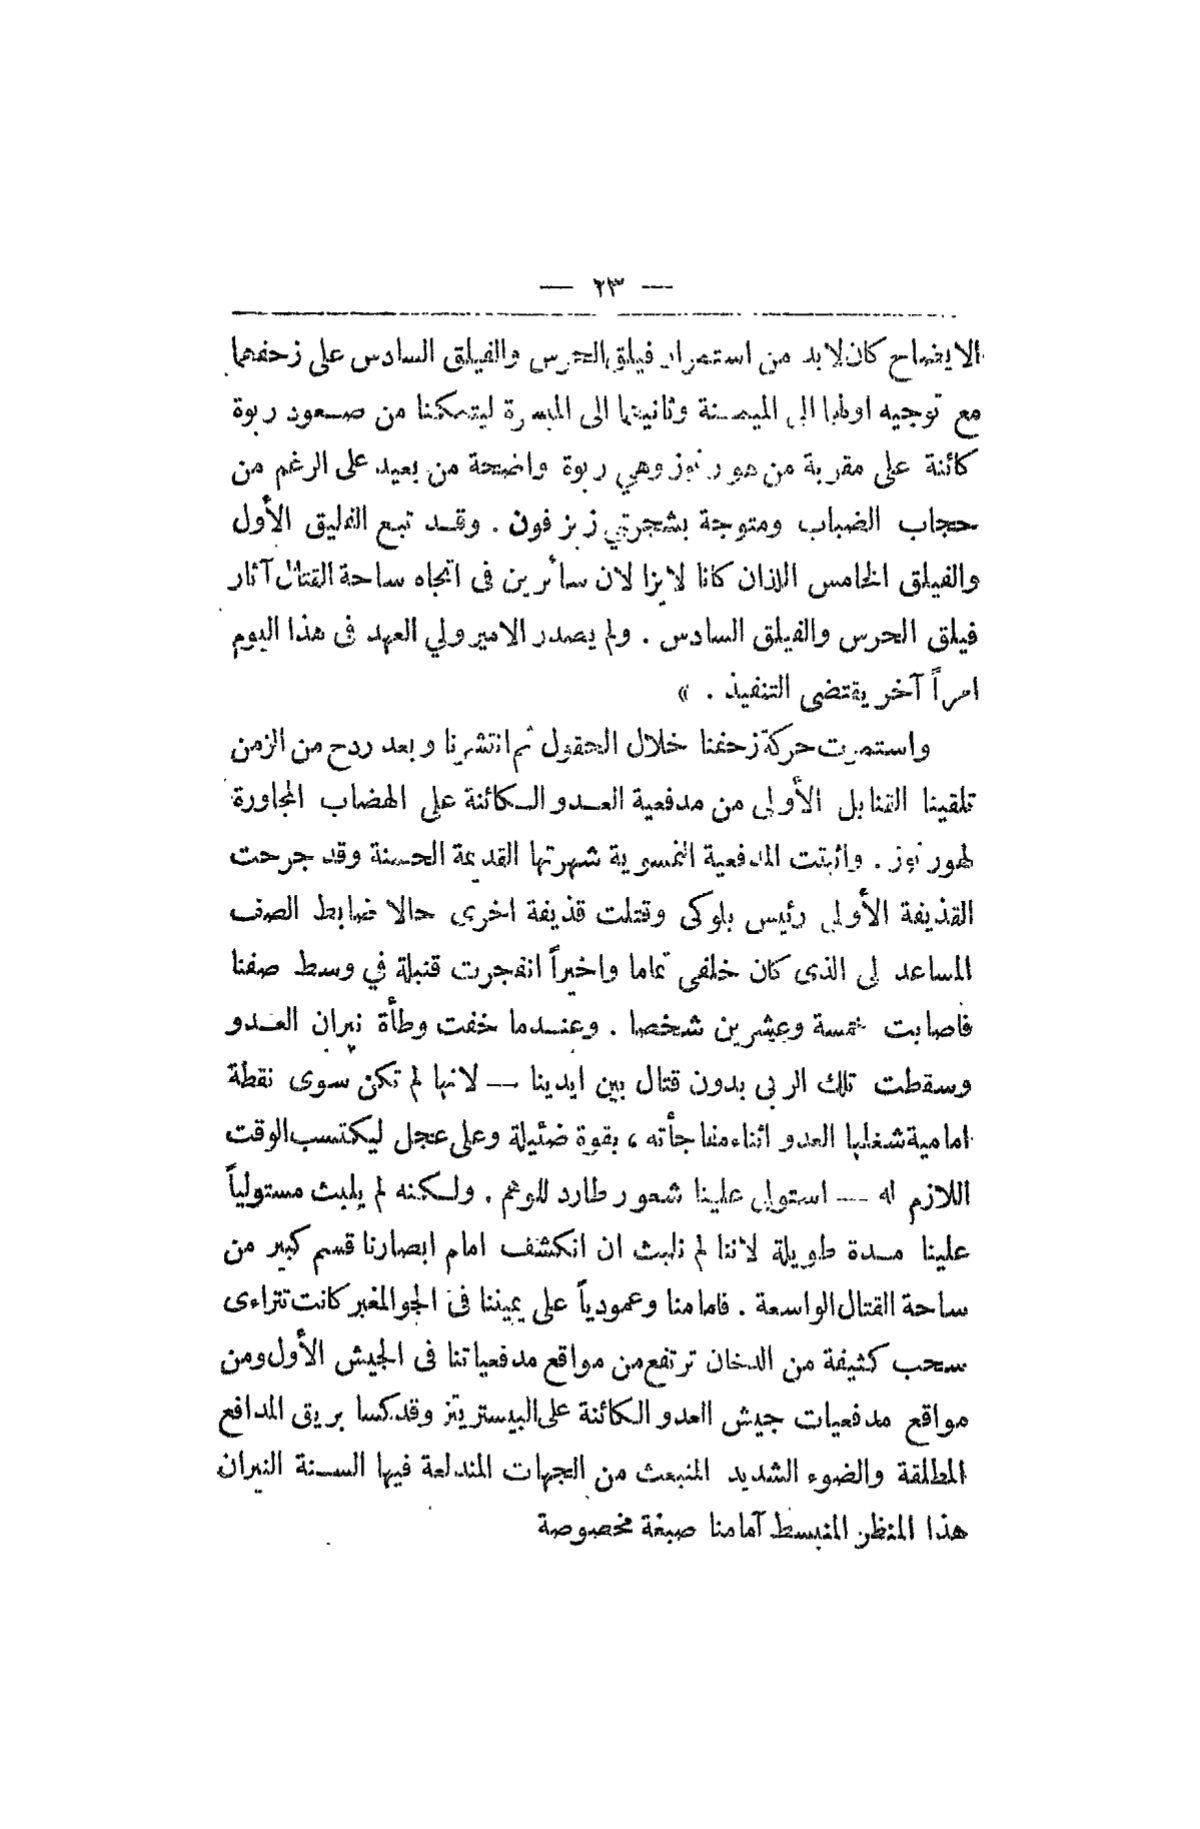 — ٢٣ —
الايضاح كان لابد من استمرار فيلق الحرس والفيلق السادس على زحفهما
مع توجيه اولهما الى الميمنة وثانيهما الى الميسرة ليتمكنا من صعود ربوة
كائنة على مقربة من هورنوز وهي ربوة واضحة من بعيد على الرغم من
حجاب الضباب ومتوجة بشجرتي زيزفون . وقد تبع الفيلق الأول
والفيلق الخامس اللذان كانا لايزالان سائرين فى اتجاه ساحة القتال آثار
فيلق الحرس والفيلق السادس . ولم يصدر الامير ولي العهد فى هذا اليوم
امراً آخر يقتضى التنفيذ . »
واستمرت حركة زحفنا خلال الحقول ثم انتشرنا وبعد ردح من الزمن
تلقينا القنابل الأولى من مدفعية العدو الكائنة على الهضاب المجاورة
لهورنوز . واثبتت المدفعية النمسوية شهرتها القديمة الحسنة وقد جرحت
القذيفة الأولى رئيس بلوكى وقتلت قذيفة اخرى حالا ضابط الصف
المساعد لى الذى كان خلفى تماما واخيراً انفجرت قنبلة في وسط صفنا
فاصابت خمسة وعشرين شخصا . وعندما خفت وطأة نيران العدو
وسقطت تلك الربى بدون قتال بين ايدينا — لانها لم تكن سوى نقطة
امامية شغلها العدو اثناء مفاجأته ، بقوة ضئيلة وعلى عجل ليكتسب الوقت
اللازم له — استولى علينا شعور طارد للوهم . ولكنه لم يلبث مستولياً
علينا مدة طويلة لاننا لم نلبث ان انكشف امام ابصارنا قسم كبير من
ساحة القتال الواسعة . فامامنا وعمودياً على يميننا فى الجو المغبر كانت تتراءى
سحب كثيفة من الدخان ترتفع من مواقع مدفعياتنا فى الجيش الأول ومن
مواقع مدفعيات جيش العدو الكائنة على البيستريتز وقد كسا بريق المدافع
المطلقة والضوء الشديد المنبعث من الجهات المندلعة فيها السنة النيران
هذا المنظر المنبسط آمامنا صبغة مخصوصة